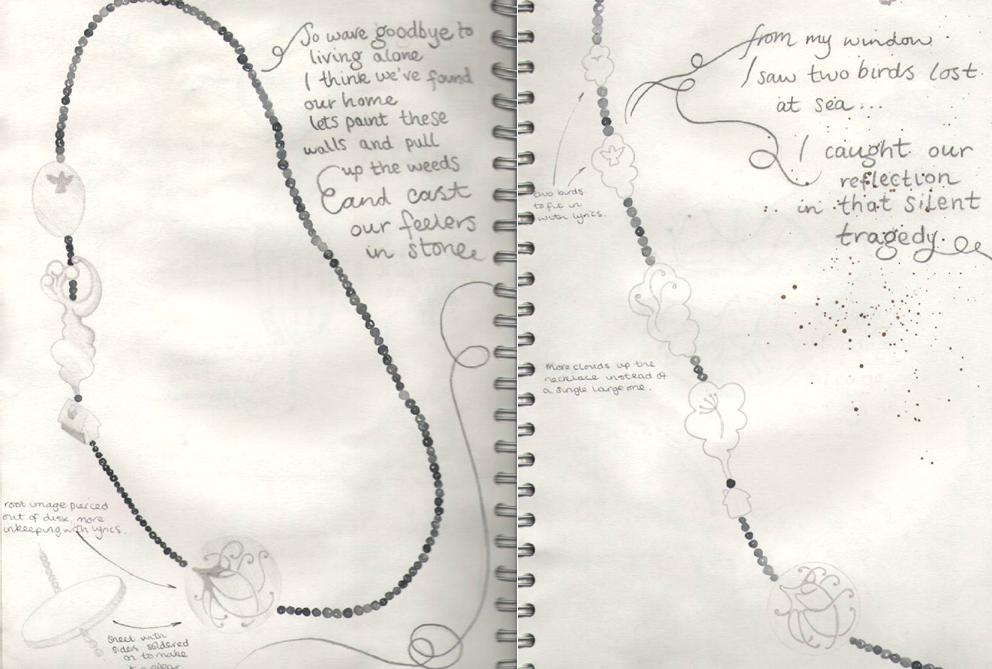 So wave goodbye to
living alone
I think we've found
our home
lets paint these
walls and pull
up the weeds
and cast
our feelers
in stone
root image pierced
out of disk, more
inkeeping with lyrics.
sheet with
sides soldered
on to make
from my window
I saw two birds lost
at sea...
I caught our
reflection
in that silent
tragedy
two birds
to fit in
with lyrics.
More clouds up the
necklace instead of
a single large one.